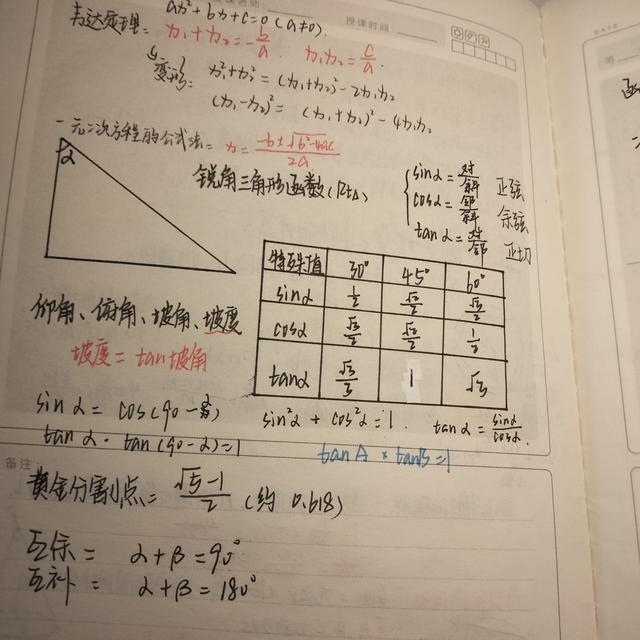 授课时间:
韦达定理: ax²+bx+c=0 (a≠0).
x₁+x₂=-b/a x₁x₂=c/a.
变形: x₁²+x₂²=(x₁+x₂)²-2x₁x₂
(x₁-x₂)²=(x₁+x₂)²-4x₁x₂
一元二次方程的公式法: x=(-b±√(b²-4ac))/2a
锐角三角形函数(Rt△)
sinα=对/斜 正弦
cosα=邻/斜 余弦
tanα=对/邻 正切
α
特殊值 30° 45° 60°
sinα 1/2 √2/2 √3/2
cosα √3/2 √2/2 1/2
tanα √3/3 1 √3
仰角、俯角、坡角、坡度
坡度=tan坡角
sinα=cos(90-α)
tanα·tan(90-α)=1
sin²α+cos²α=1. tanα=sinα/cosα.
tanA×tanB=1
备注:
黄金分割点=(√5-1)/2 (约0.618)
互余= α+β=90°
互补= α+β=180°